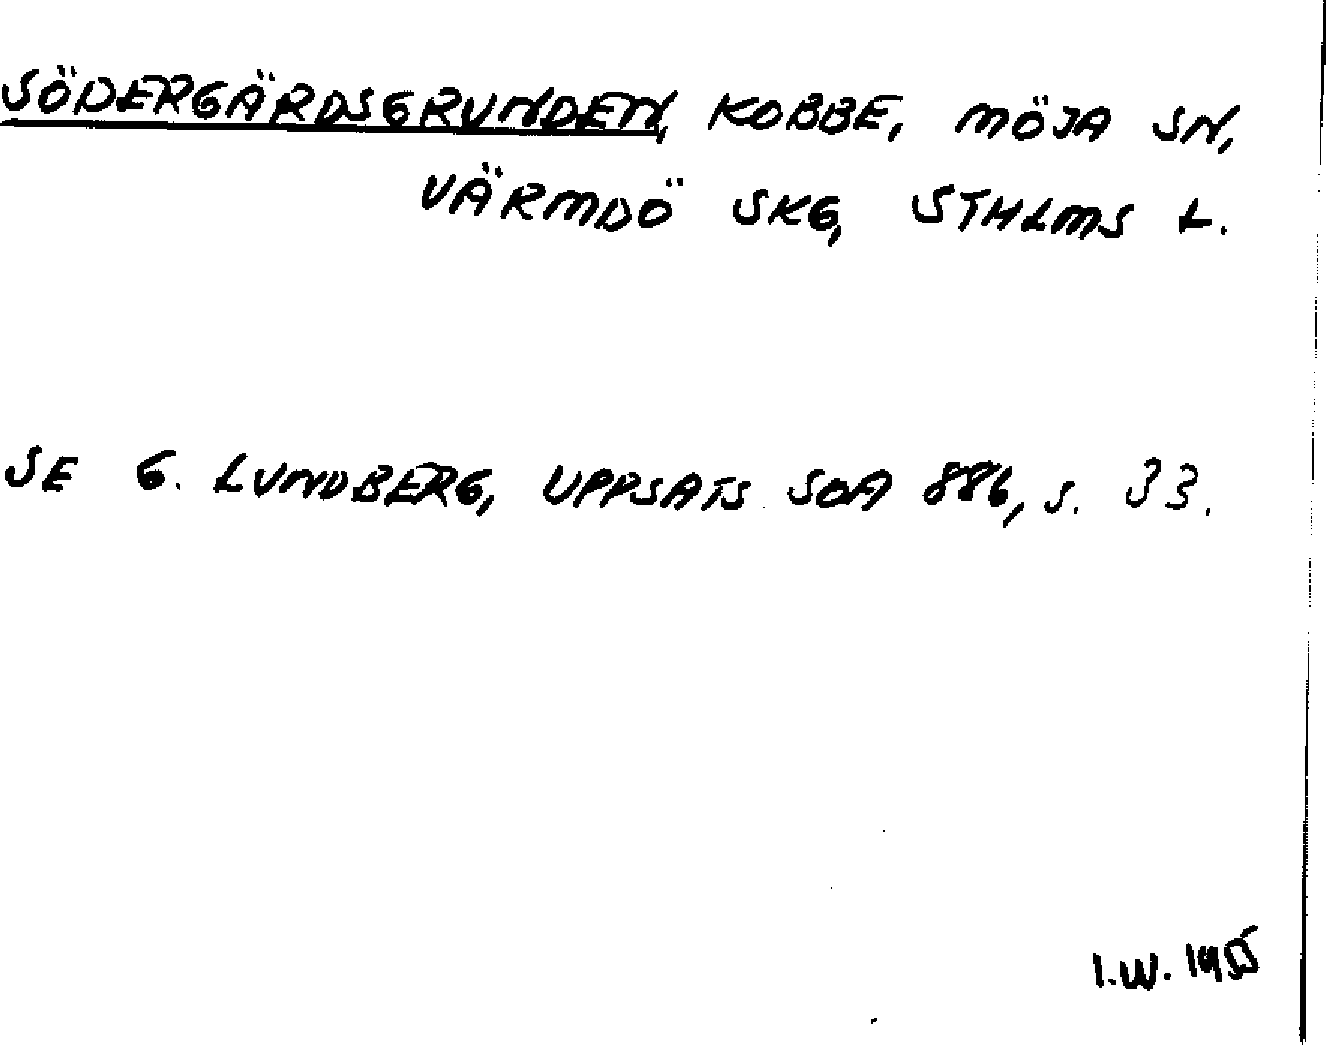 SÖDERGÄRDSGRUNDEN, KOBBE, MÖJA SN,
VÄRMDÖ SKG, STHLMS L.
SE G. LUNDBERG, UPPSATS SOA 886, S. 33.
I.W. 1955